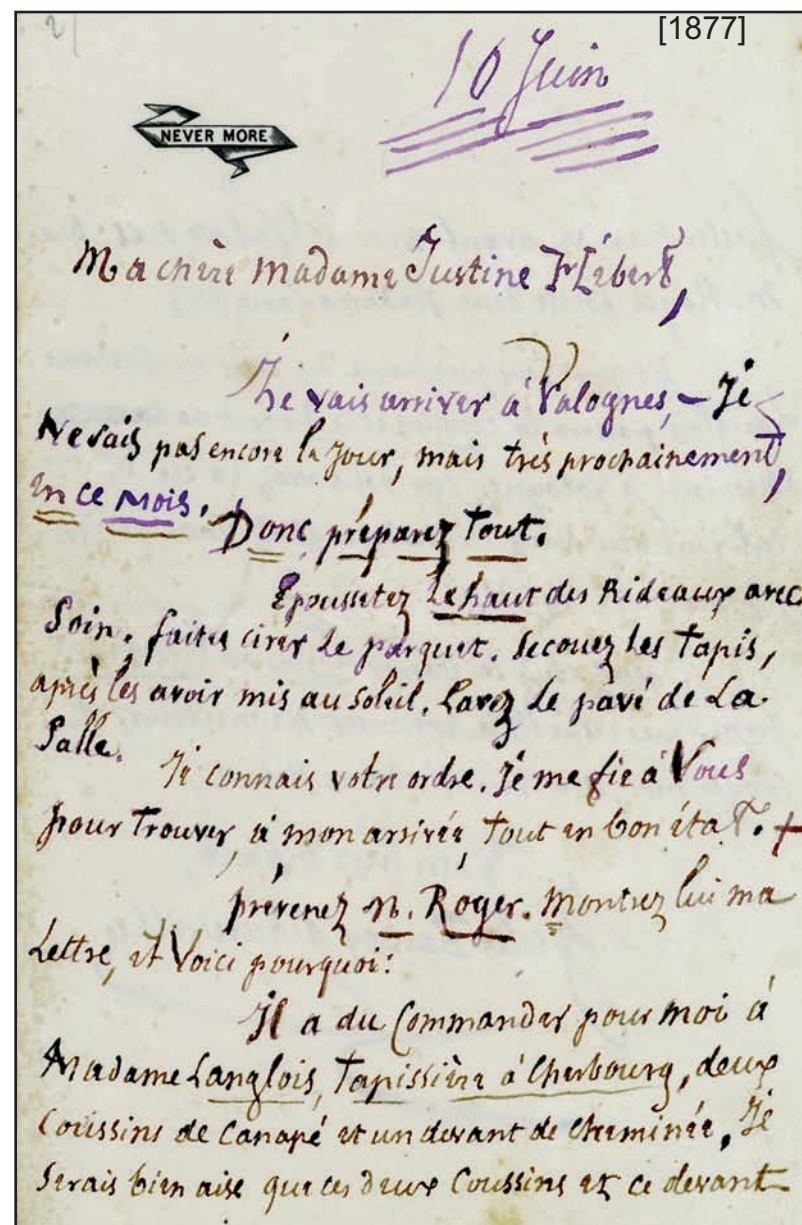 [1877]
10 Juin
NEVER MORE
Ma chère Madame Justine
Je vais arriver à Valognes, – Je
Ne sais pas encore le jour, mais très prochainement,
en ce Mois.
Donc, préparez Tout.
Epoussetez Le haut des Rideaux avec
Soin. faites cirer le parquet. Secouez les Tapis,
après les avoir mis au soleil. Lavez le pavé de La
Salle.
Je connais votre ordre. Je me fie à Vous
pour Trouver, à mon arrivée, Tout en bon état. +
prévenez M. Roger. Montrez lui ma
Lettre, et Voici pourquoi:
Il a du Commander pour moi à
Madame Langlois, Tapissière à Cherbourg, deux
Coussins de Canapé et un devant de Cheminée. Je
Serais bien aise que ces deux Coussins et ce devant